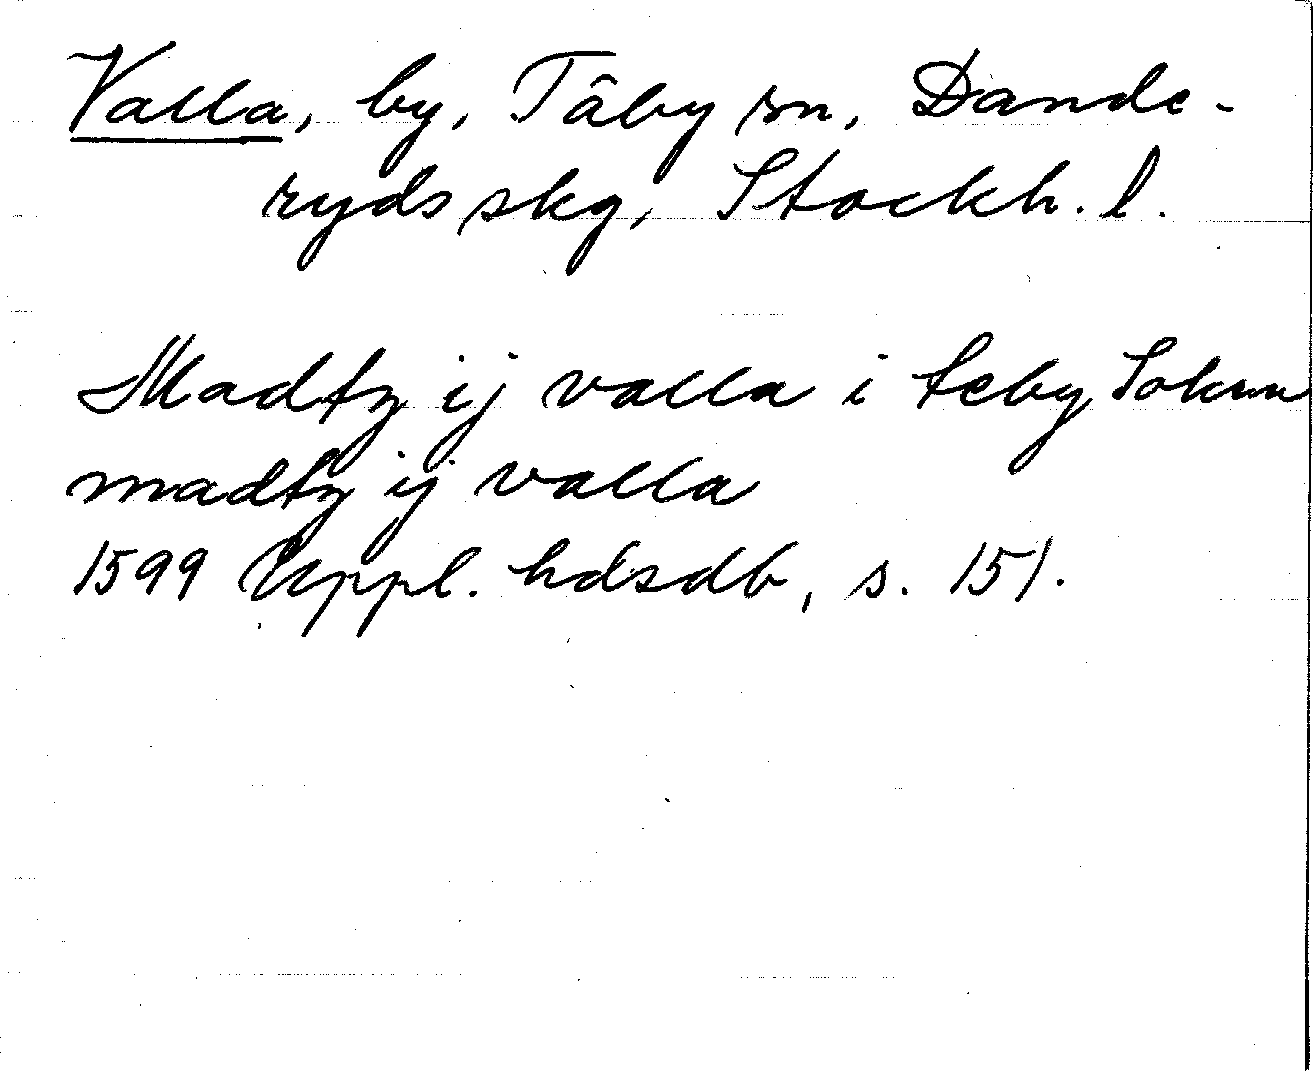 Valla, by, Täby sn, Dande-
ryds skg, Stockh. l.
Madtz ij valla i teby Soknn
madtz ij valla
1599 Uppl. hdsdb, s. 151.